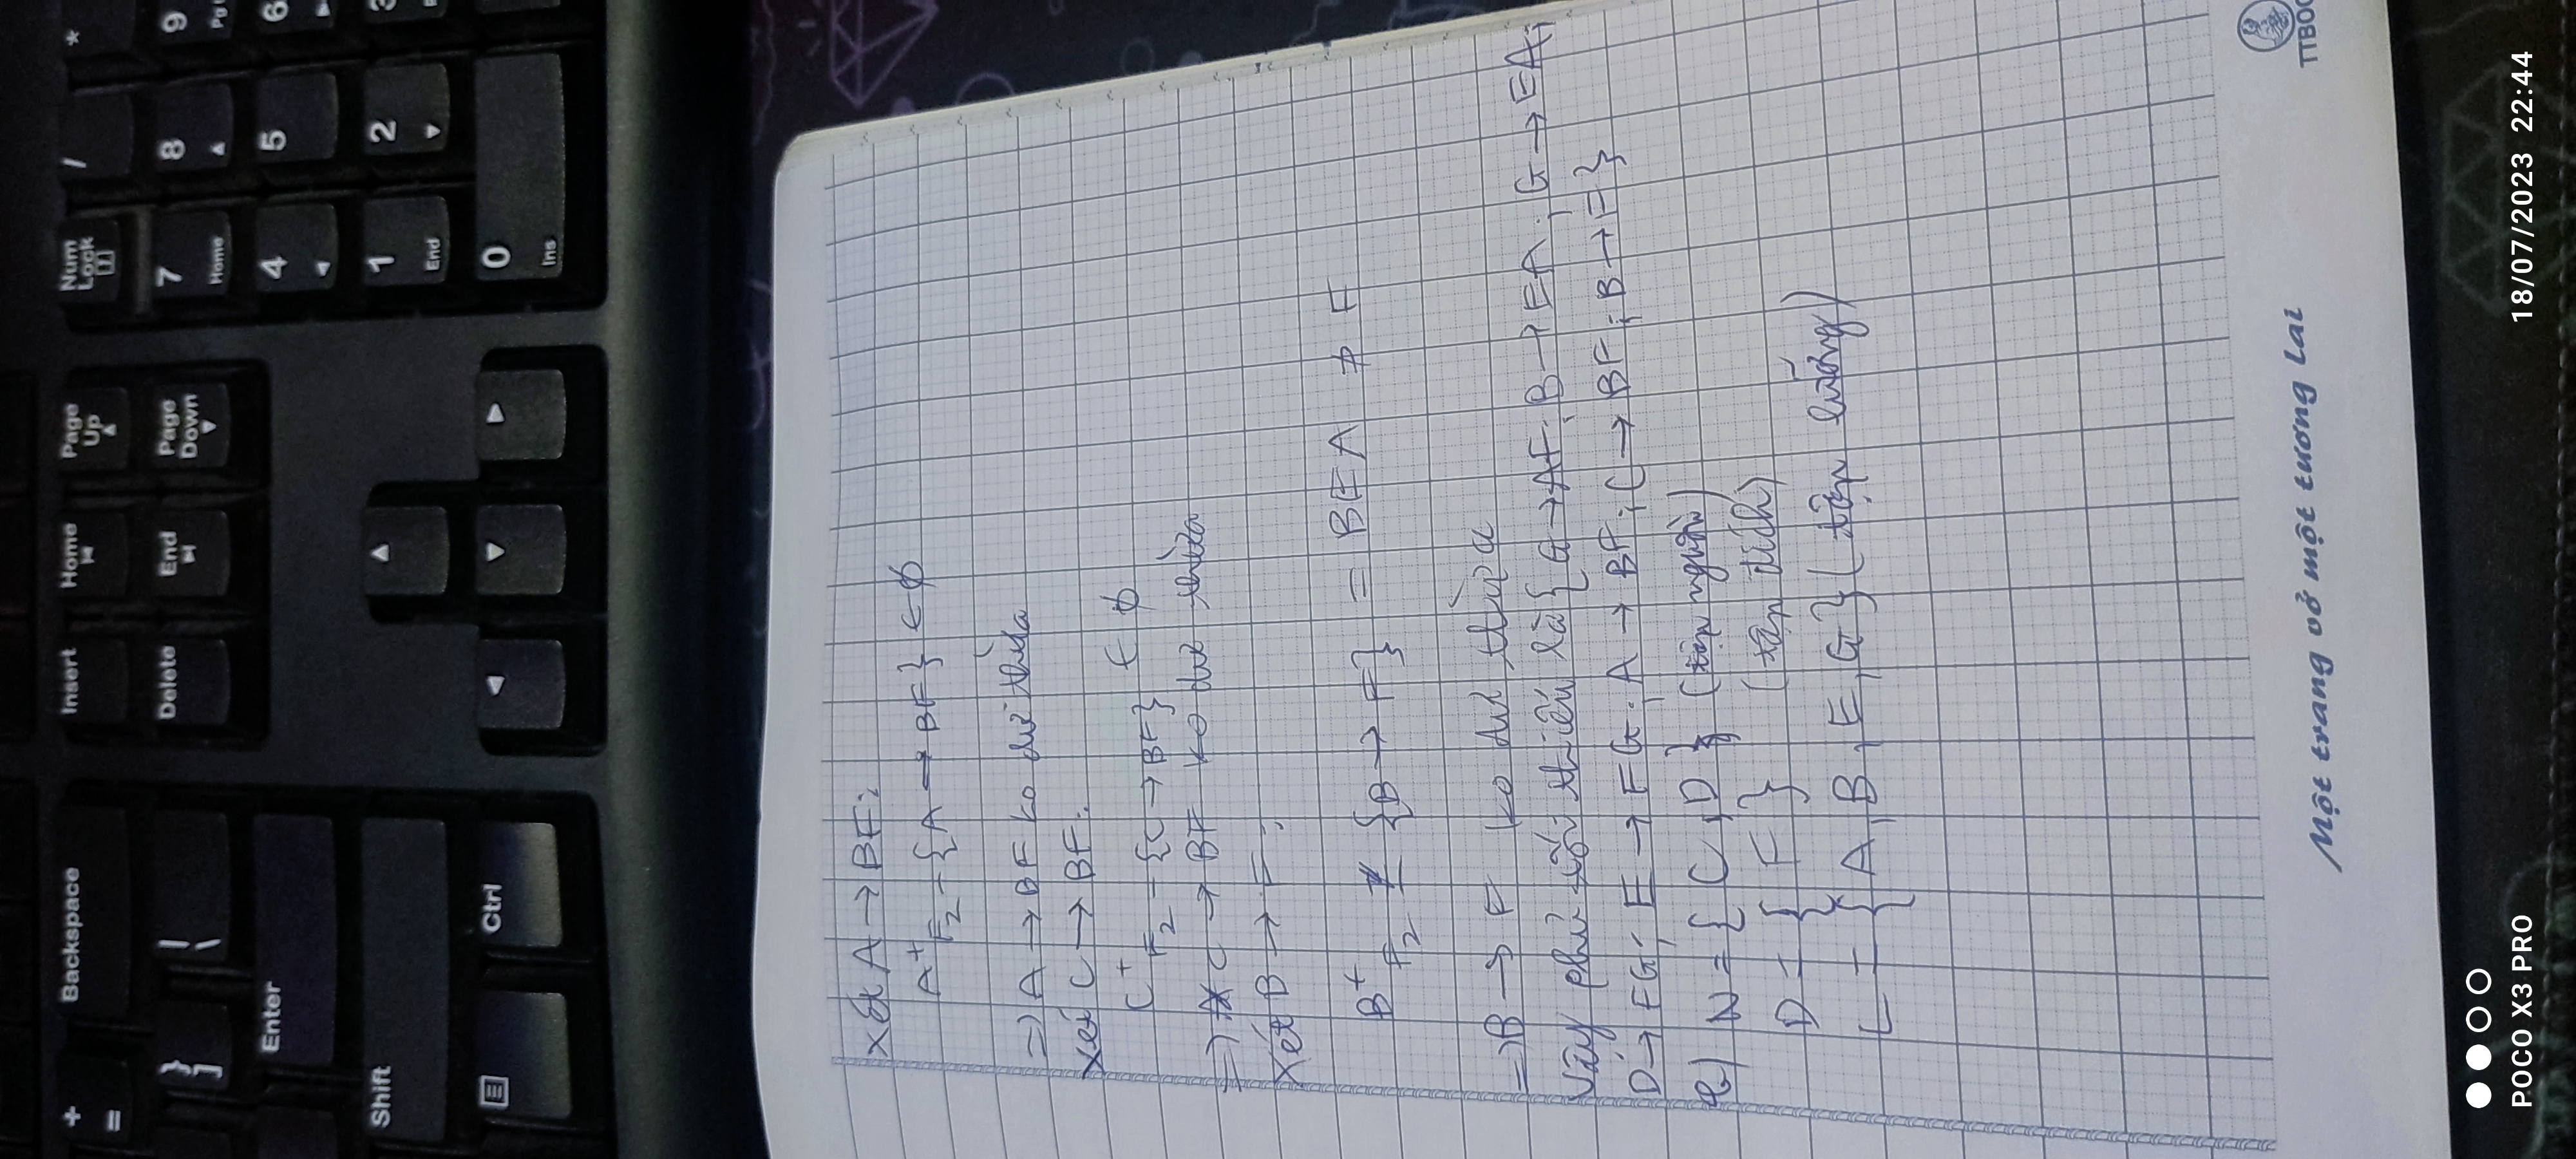 + Backspace Insert Home Page Up Num Lock / *
=
} | Delete End Page Down 7 8 9
] \ Home Pg
Enter 4 5 6
Shift 1 2 3
End
Ctrl 0
Ins
Xét A → BF:
A⁺ F₂ - {A → BF} ∈ ∅
=> A → BF ko dư thừa
Xét C → BF:
C⁺ F₂ - {C → BF} ∈ ∅
=> C → BF ko dư thừa
Xét B → F:
B⁺ F₂ - {B → F} = BEA ∌ F
=> B → F ko dư thừa
Vậy phủ tối thiểu là { G → AF; B → EA; G → EA;
D → FG; E → FG; A → BF; C → BF; B → F }
b) N = { C, D } (tập nguồn)
D = { F } (tập đích)
L = { A, B, E, G } (tập lưỡng)
Một trang vở một tương lai
POCO X3 PRO 18/07/2023 22:44